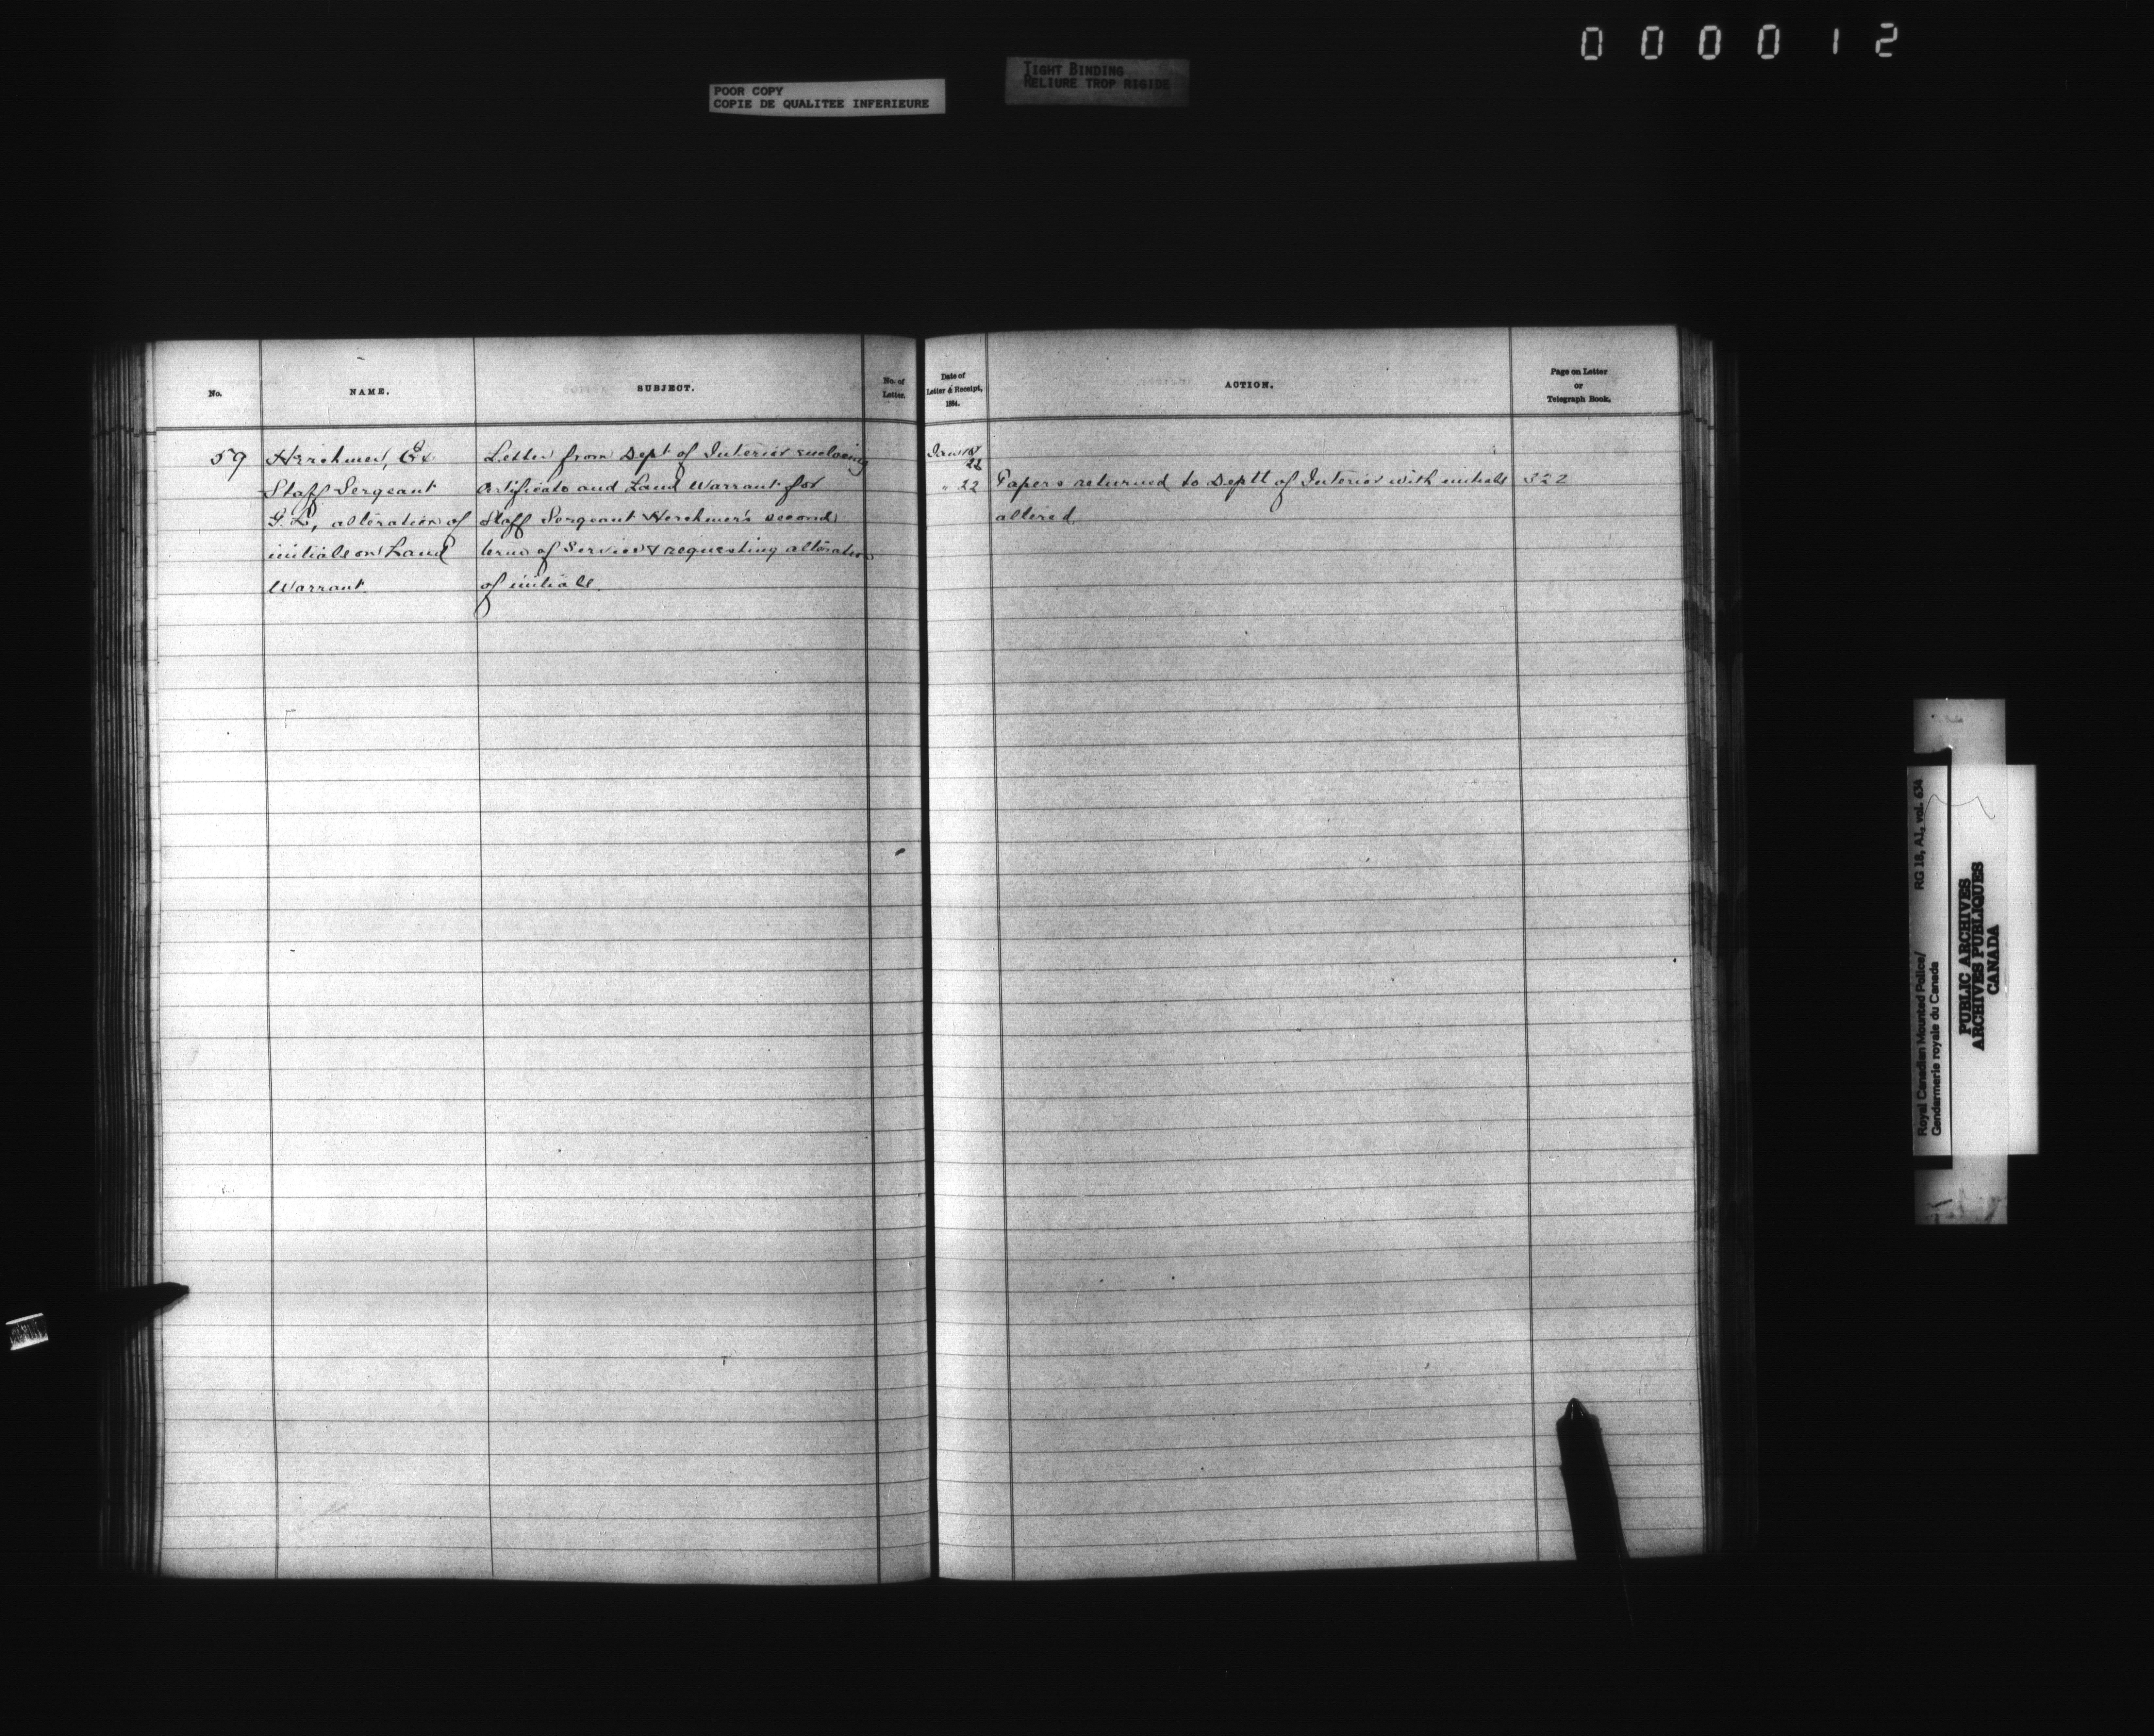 000012
POOR COPY
COPIE DE QUALITEE INFERIEURE
TIGHT BINDING
RELIURE TROP RIGIDE
No.
NAME.
SUBJECT.
No. of
Letter.
Date of
Letter & Receipt,
188 .
ACTION.
Page on Letter
or
Telegraph Book.
59
Herchmer, Ex
Staff Sergeant
G. L, alteration of
initials on Land
Warrant.
Letter from Dept of Interior enclosing
Certificate and Land Warrant for
Staff Sergeant Herchmer's second
term of Service & requesting alteration
of initials.
Jany 18
22
" 22
Papers returned to Deptt of Interior with initials
altered.
322
Royal Canadian Mounted Police/
Gendarmerie royale du Canada
RG 18, A1, vol. 634
PUBLIC ARCHIVES
ARCHIVES PUBLIQUES
CANADA